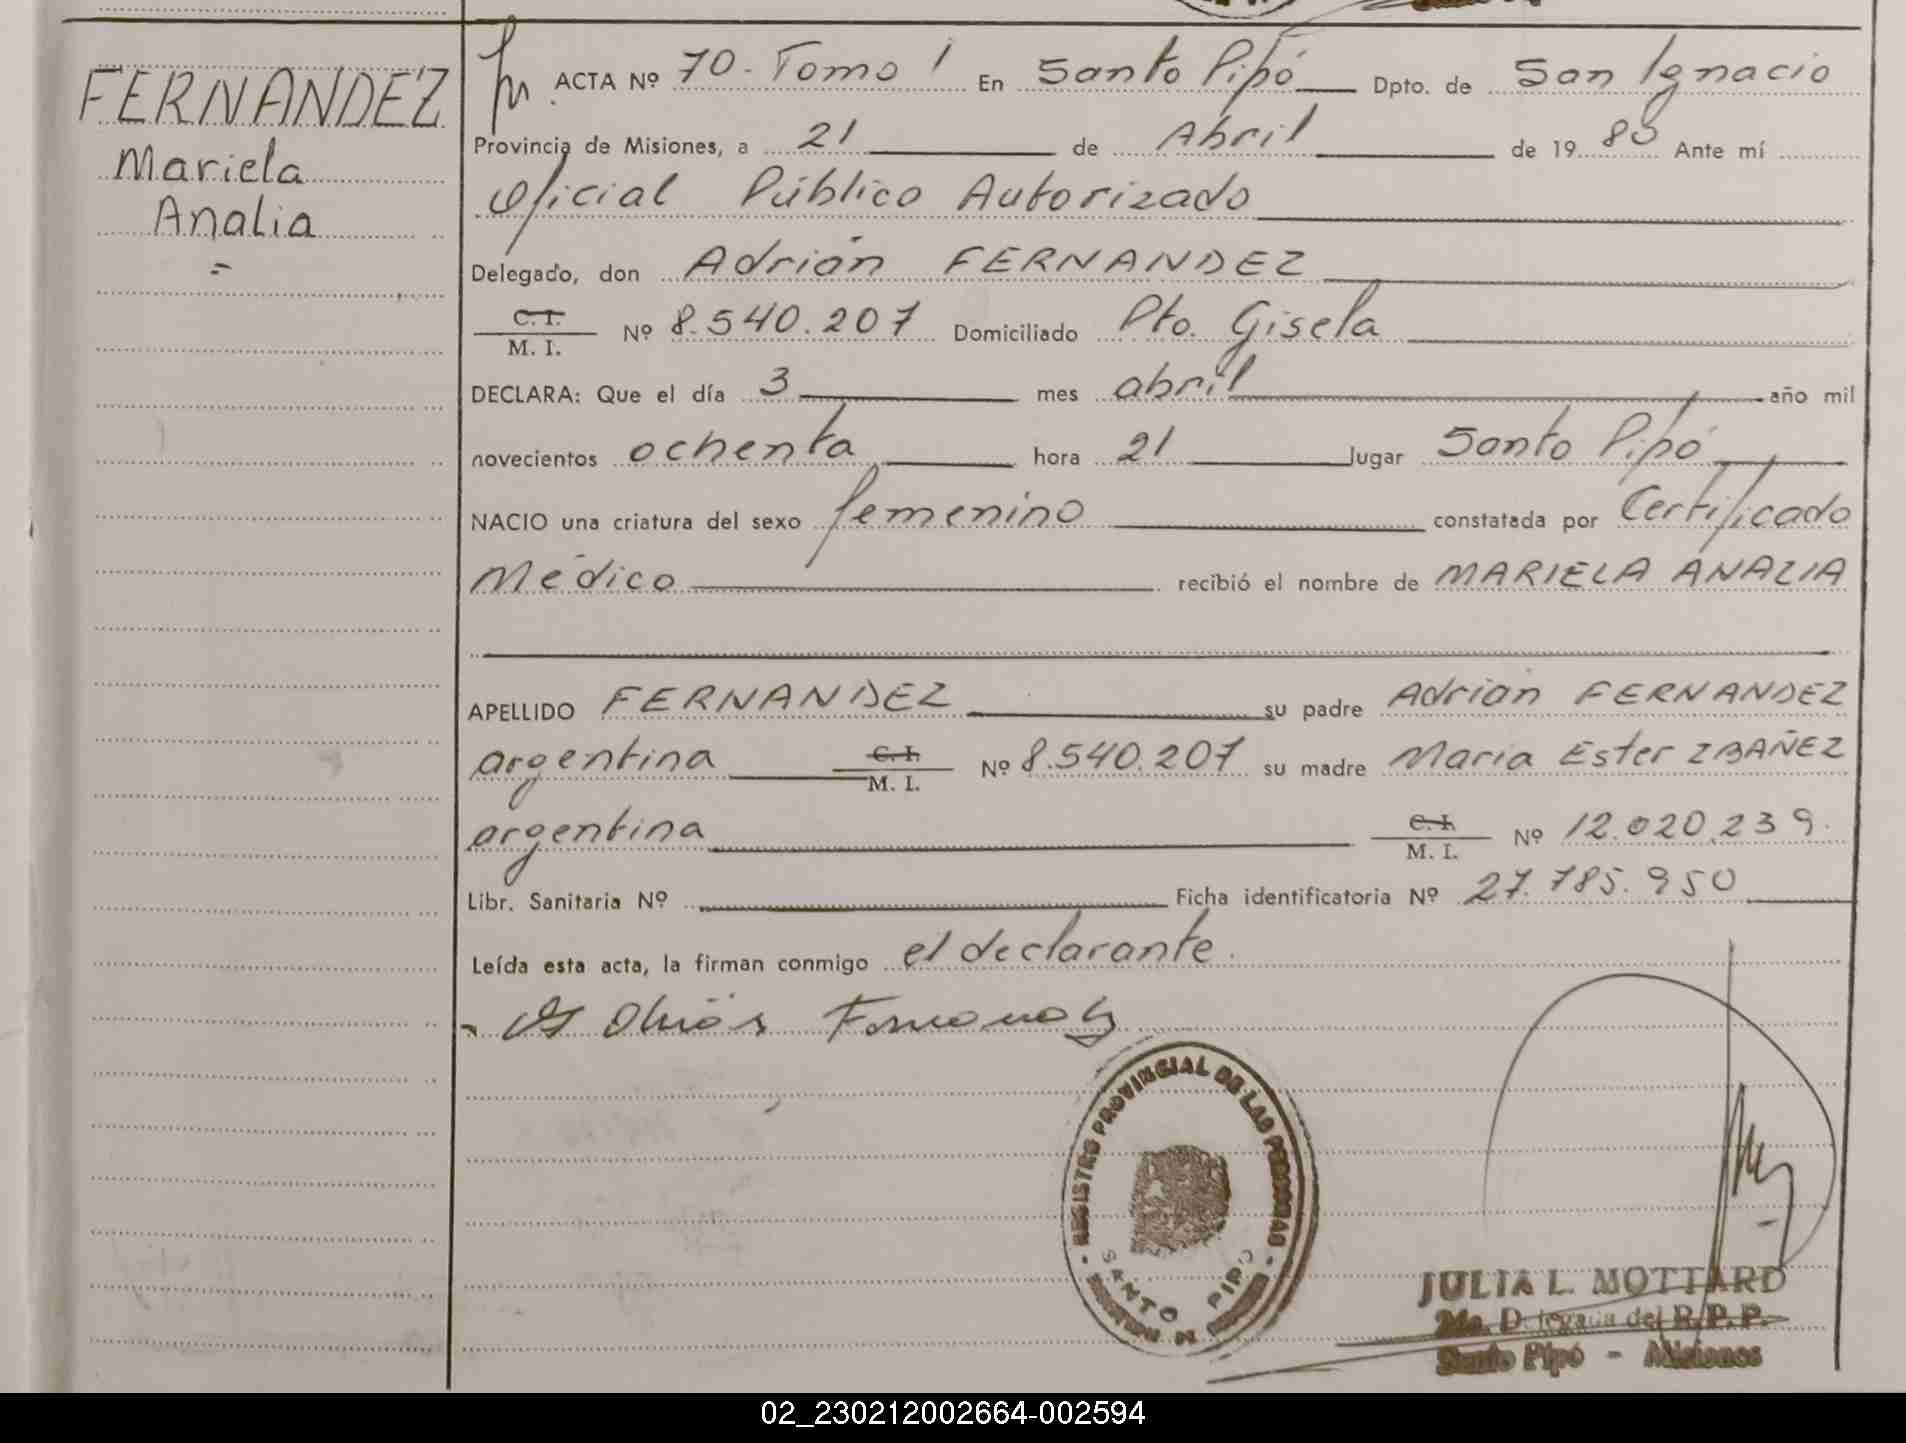 FERNANDEZ
Mariela
Analia
ACTA Nº 70 - Tomo I En Santo Pipó Dpto. de San Ignacio
Provincia de Misiones, a 21 de Abril de 1980 Ante mí
Oficial Público Autorizado
Delegado, don Adrián FERNANDEZ
C. I.
M. I. Nº 8.540.207 Domiciliado Pto. Gisela
DECLARA: Que el día 3 mes abril año mil
novecientos ochenta hora 21 lugar Santo Pipó
NACIO una criatura del sexo femenino constatada por Certificado
Médico recibió el nombre de MARIELA ANALIA
APELLIDO FERNANDEZ su padre Adrián FERNANDEZ
argentina C. I. M. I. Nº 8.540.207 su madre María Ester IBAÑEZ
argentina C. I. M. I. Nº 12.020.239.
Libr. Sanitaria Nº Ficha identificatoria Nº 27.785.950
Leída esta acta, la firman conmigo el declarante.
REGISTRO PROVINCIAL DE LAS PERSONAS
SANTO PIPÓ
JULIA L. MOTTARD
Delegada del R. P. P.
Santo Pipó - Misiones
02_230212002664-002594